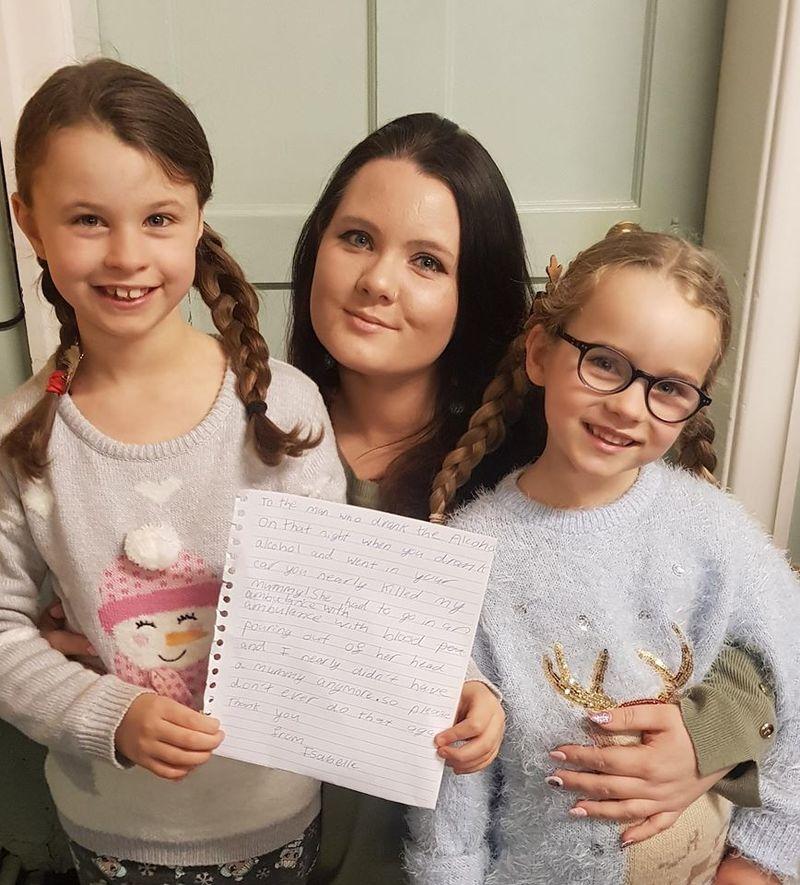 To the man who drank the Alcohol
On that night when you drank
alcohol and went in your
car you nearly killed my
mummy! She had to go in an
ambulance with
ambulance with blood poo
pouring out of her head
and I nearly didn't have
a mummy anymore. so please
don't ever do that aga
Thank you
from
Isabelle